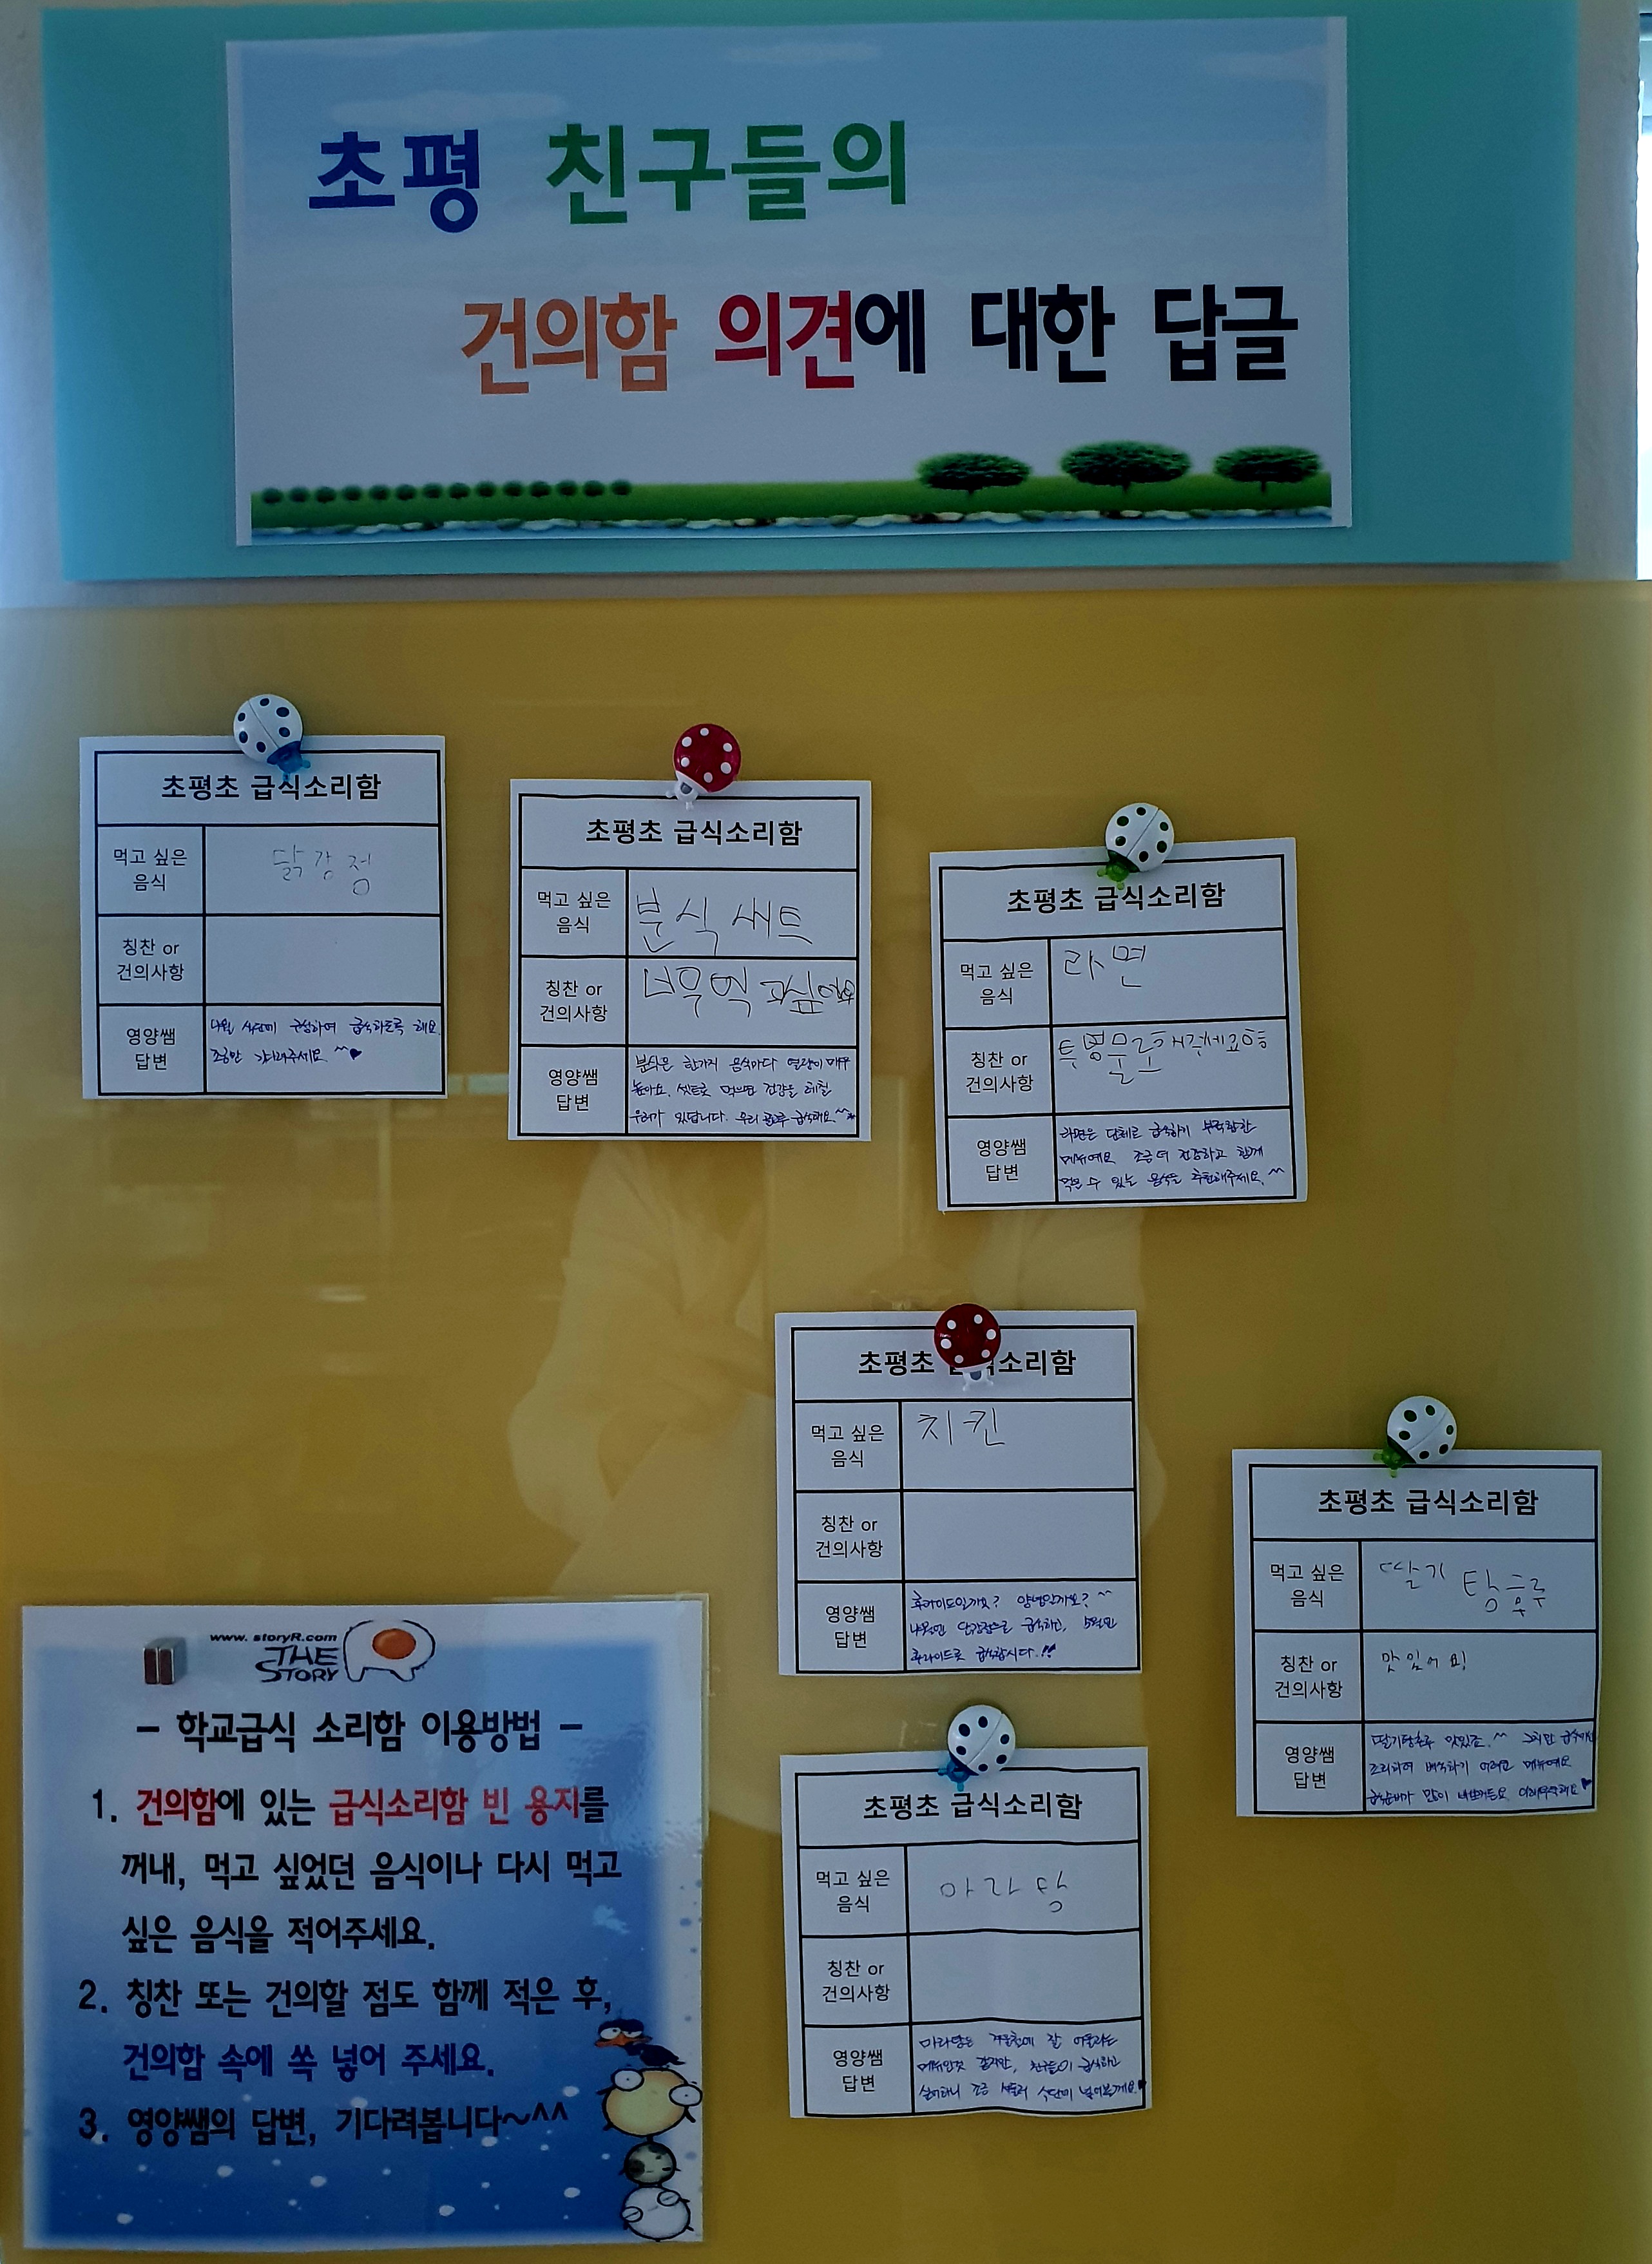 초평 친구들의
건의함 의견에 대한 답글
초평초 급식소리함
먹고 싶은
음식
닭강정
칭찬 or
건의사항
영양쌤
답변
식단에 구성하여 급식하도록 해요
조금만 기다려주세요 ^^♥
초평초 급식소리함
먹고 싶은
음식
분식 쎄트
칭찬 or
건의사항
너무 먹고싶어요
영양쌤
답변
분식은 한가지 음식마다 열량이 매우
높아요. 셋트로 먹으면 건강을 해칠
우려가 있답니다. 우리 급식해요.^^
초평초 급식소리함
먹고 싶은
음식
라면
칭찬 or
건의사항
영양쌤
답변
라면은 단체로 급식하기 부적합한
메뉴예요 조금 더 건강하고 함께
먹을 수 있는 음식을 추천해주세요.^^
초평초 소리함
먹고 싶은
음식
치킨
칭찬 or
건의사항
영양쌤
답변
후라이드일까요? 양념일까요? ^^
닭강정으로 급식하고, 5월엔
후라이드로 급식합시다.!!
초평초 급식소리함
먹고 싶은
음식
딸기 탕후루
칭찬 or
건의사항
맛있어요!
영양쌤
답변
딸기탕후루 맛있죠.^^ 그치만
조리하여 배식하기 어려운 메뉴예요
많이
초평초 급식소리함
먹고 싶은
음식
마라탕
칭찬 or
건의사항
영양쌤
답변
마라탕은 겨울철에 잘 어울리는
메뉴인것 같지만, 친구들이 급식하고
싶어하니 조금 서둘러 식단에 넣어볼게요♥
www. storyR.com
THE
STORY
– 학교급식 소리함 이용방법 –
1. 건의함에 있는 급식소리함 빈 용지를
꺼내, 먹고 싶었던 음식이나 다시 먹고
싶은 음식을 적어주세요.
2. 칭찬 또는 건의할 점도 함께 적은 후,
건의함 속에 쏙 넣어 주세요.
3. 영양쌤의 답변, 기다려봅니다~^^